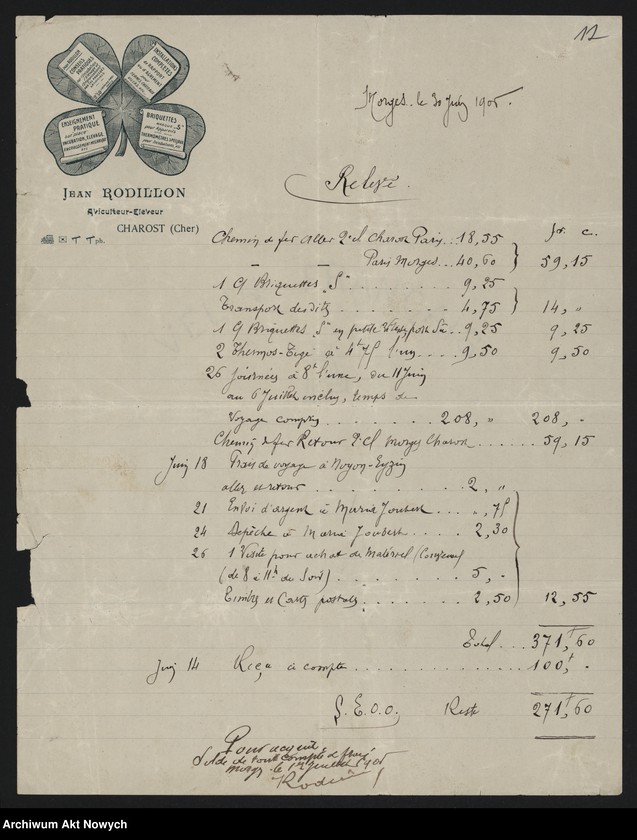 11
JEAN RODILLON
CONSEILS
PRATIQUES
INSTALLATIONS
COMPLETES
ENSEIGNEMENT
PRATIQUE
INCUBATION, ELEVAGE,
BRIQUETTES
pour Appareils
THERMOMÈTRES SPÉCIAUX
JEAN RODILLON
Aviculteur-Eleveur
CHAROST (Cher)
Morges. le 30 Juin 1906.
Relevé.
fr. c.
Chemin de fer Aller 2e cl Charost Paris.. 18,55
— — Paris Morges... 40,60 } 59,15
1 Q Briquettes "S" . . . . 9,25
Transport desdits . . . . 4,75 } 14, "
1 Q Briquettes "S" en petite port . . 9,25 9,25
2 Thermos-Tige à 4f 75 l'un . . . 9,50 9,50
26 Journées à 8f l'une, du 11 Juin
au 6 Juillet inclus, temps de
Voyage compris . . . . . . . 208, " 208, -
Chemin de fer Retour 2e cl Morges Charost . . . . . . 59,15
Juin 18 Frais de voyage à Noyon-
aller et retour . . . . . . . 2, "
21 Envoi d'argent à Marie Joubert . . . ", 75
24 Depêche à Marie Joubert . . . . 2,30
26 1 Visite pour achat de Matériel
(de 8 à 11h du Soir) . . . . . . . 5, -
Timbres et Cartes postales . . . . . . 2,50 } 12,55
Total . . . 371,f60
Juin 14 Reçu à compte . . . . . . . . . . . 100,f -
S. E. O. O. Reste 271,f60
Pour acquit
Solde de tout compte de frais
Morges le 1er Juillet 1906
Rodillon
Archiwum Akt Nowych